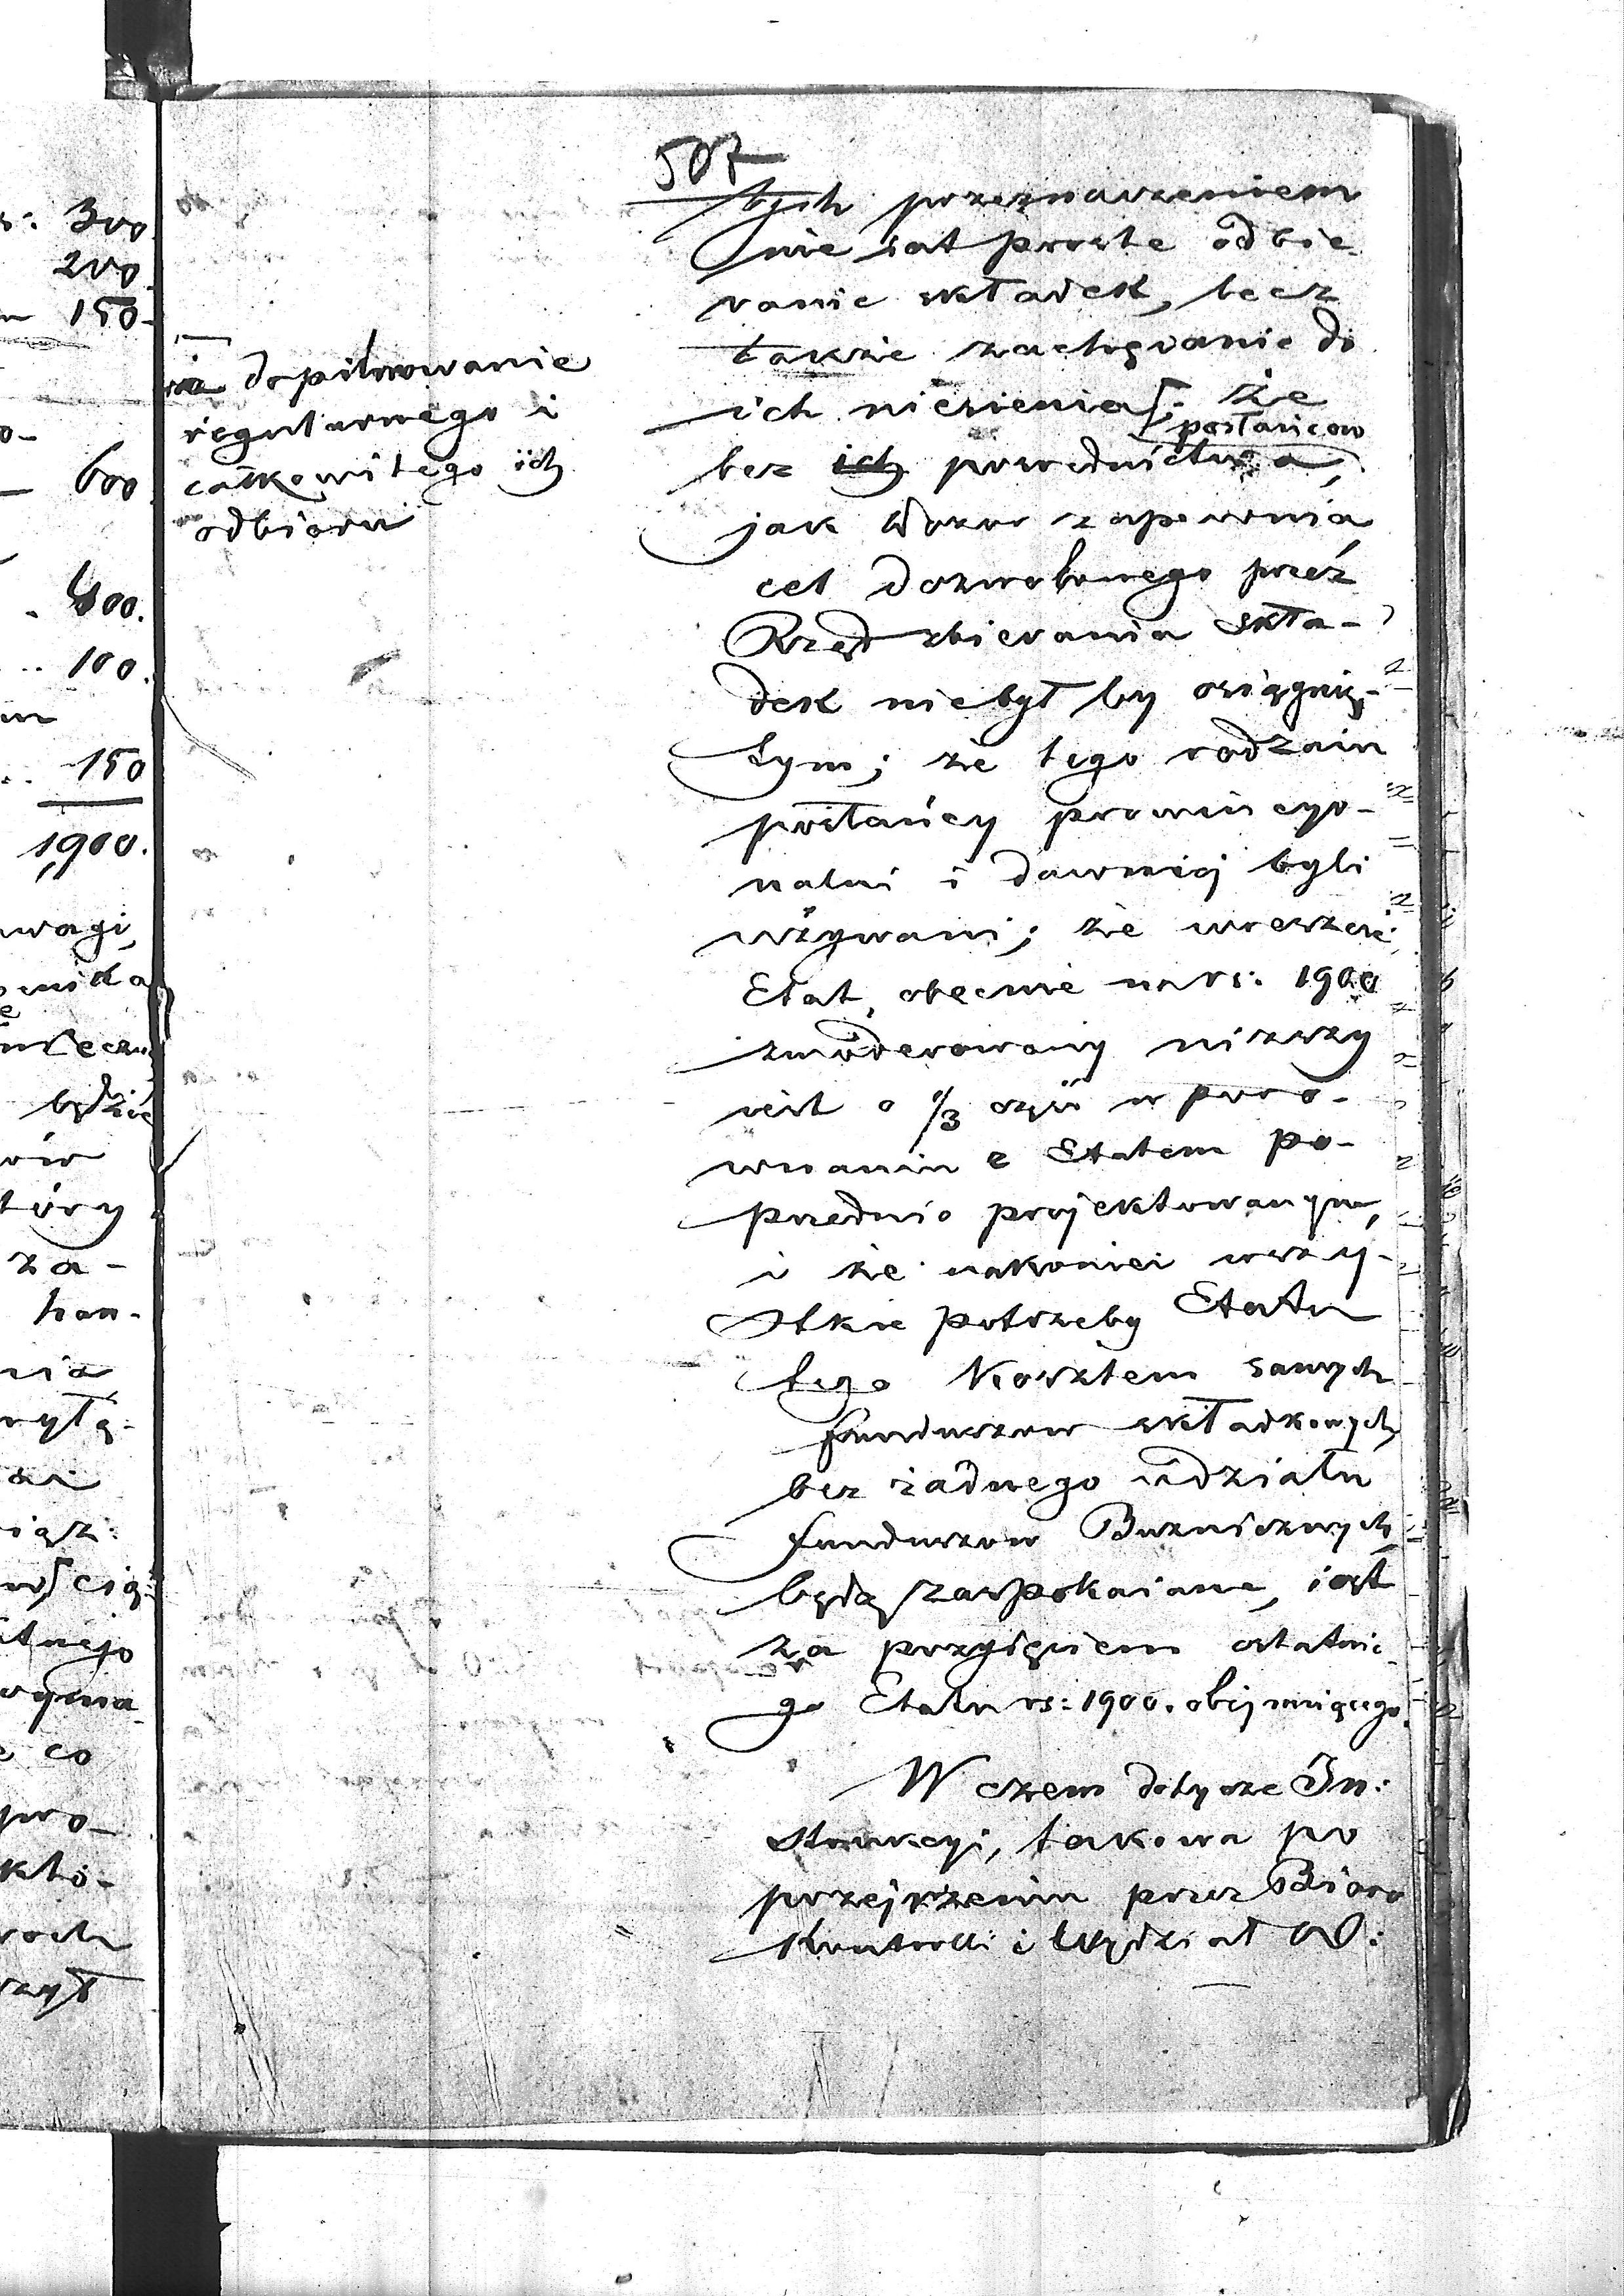 s: 300
200
150
600
400.
100.
150
1,900.
uwagi
będzie
tóry
za-
han-
nia
co
pro-
któ-
ia dopilnowanie
regularnego i
całkowitego ich
odbioru
507
tych przeznaczeniem
nie iest proste odbie
ranie składek, lecz
także zachęcanie do
ich niesienia; że
posłańców
bez ich pośrednictwa,
jak Dozor zapewnia
cel dozwolonego przez
Rząd zbierania skła-
dek niebył by osiągnię-
tym; że tego rodzaiu
posłańcy prowincyo-
nalni i dawniej byli
używani; że wreszcie
Etat, obecnie na rs: 1900
zmoderowany niższy
iest o 1/3 części w poró-
wnaniu z Etatem po-
przednio projektowanym,
i że nakoniec wszy-
stkie potrzeby Etatu
tego Kosztem samych
funduszow składkowych
bez żadnego udziału
funduszow Boznicznych
będą zaspokaiane, iest
za przyięciem ostatnie
go Etatu rs: 1900. obejmuiącego.
W czem dotycze In:
strukcyi, takowa po
przejrzeniu przez Bioro
Kontrolli i Wydział W: